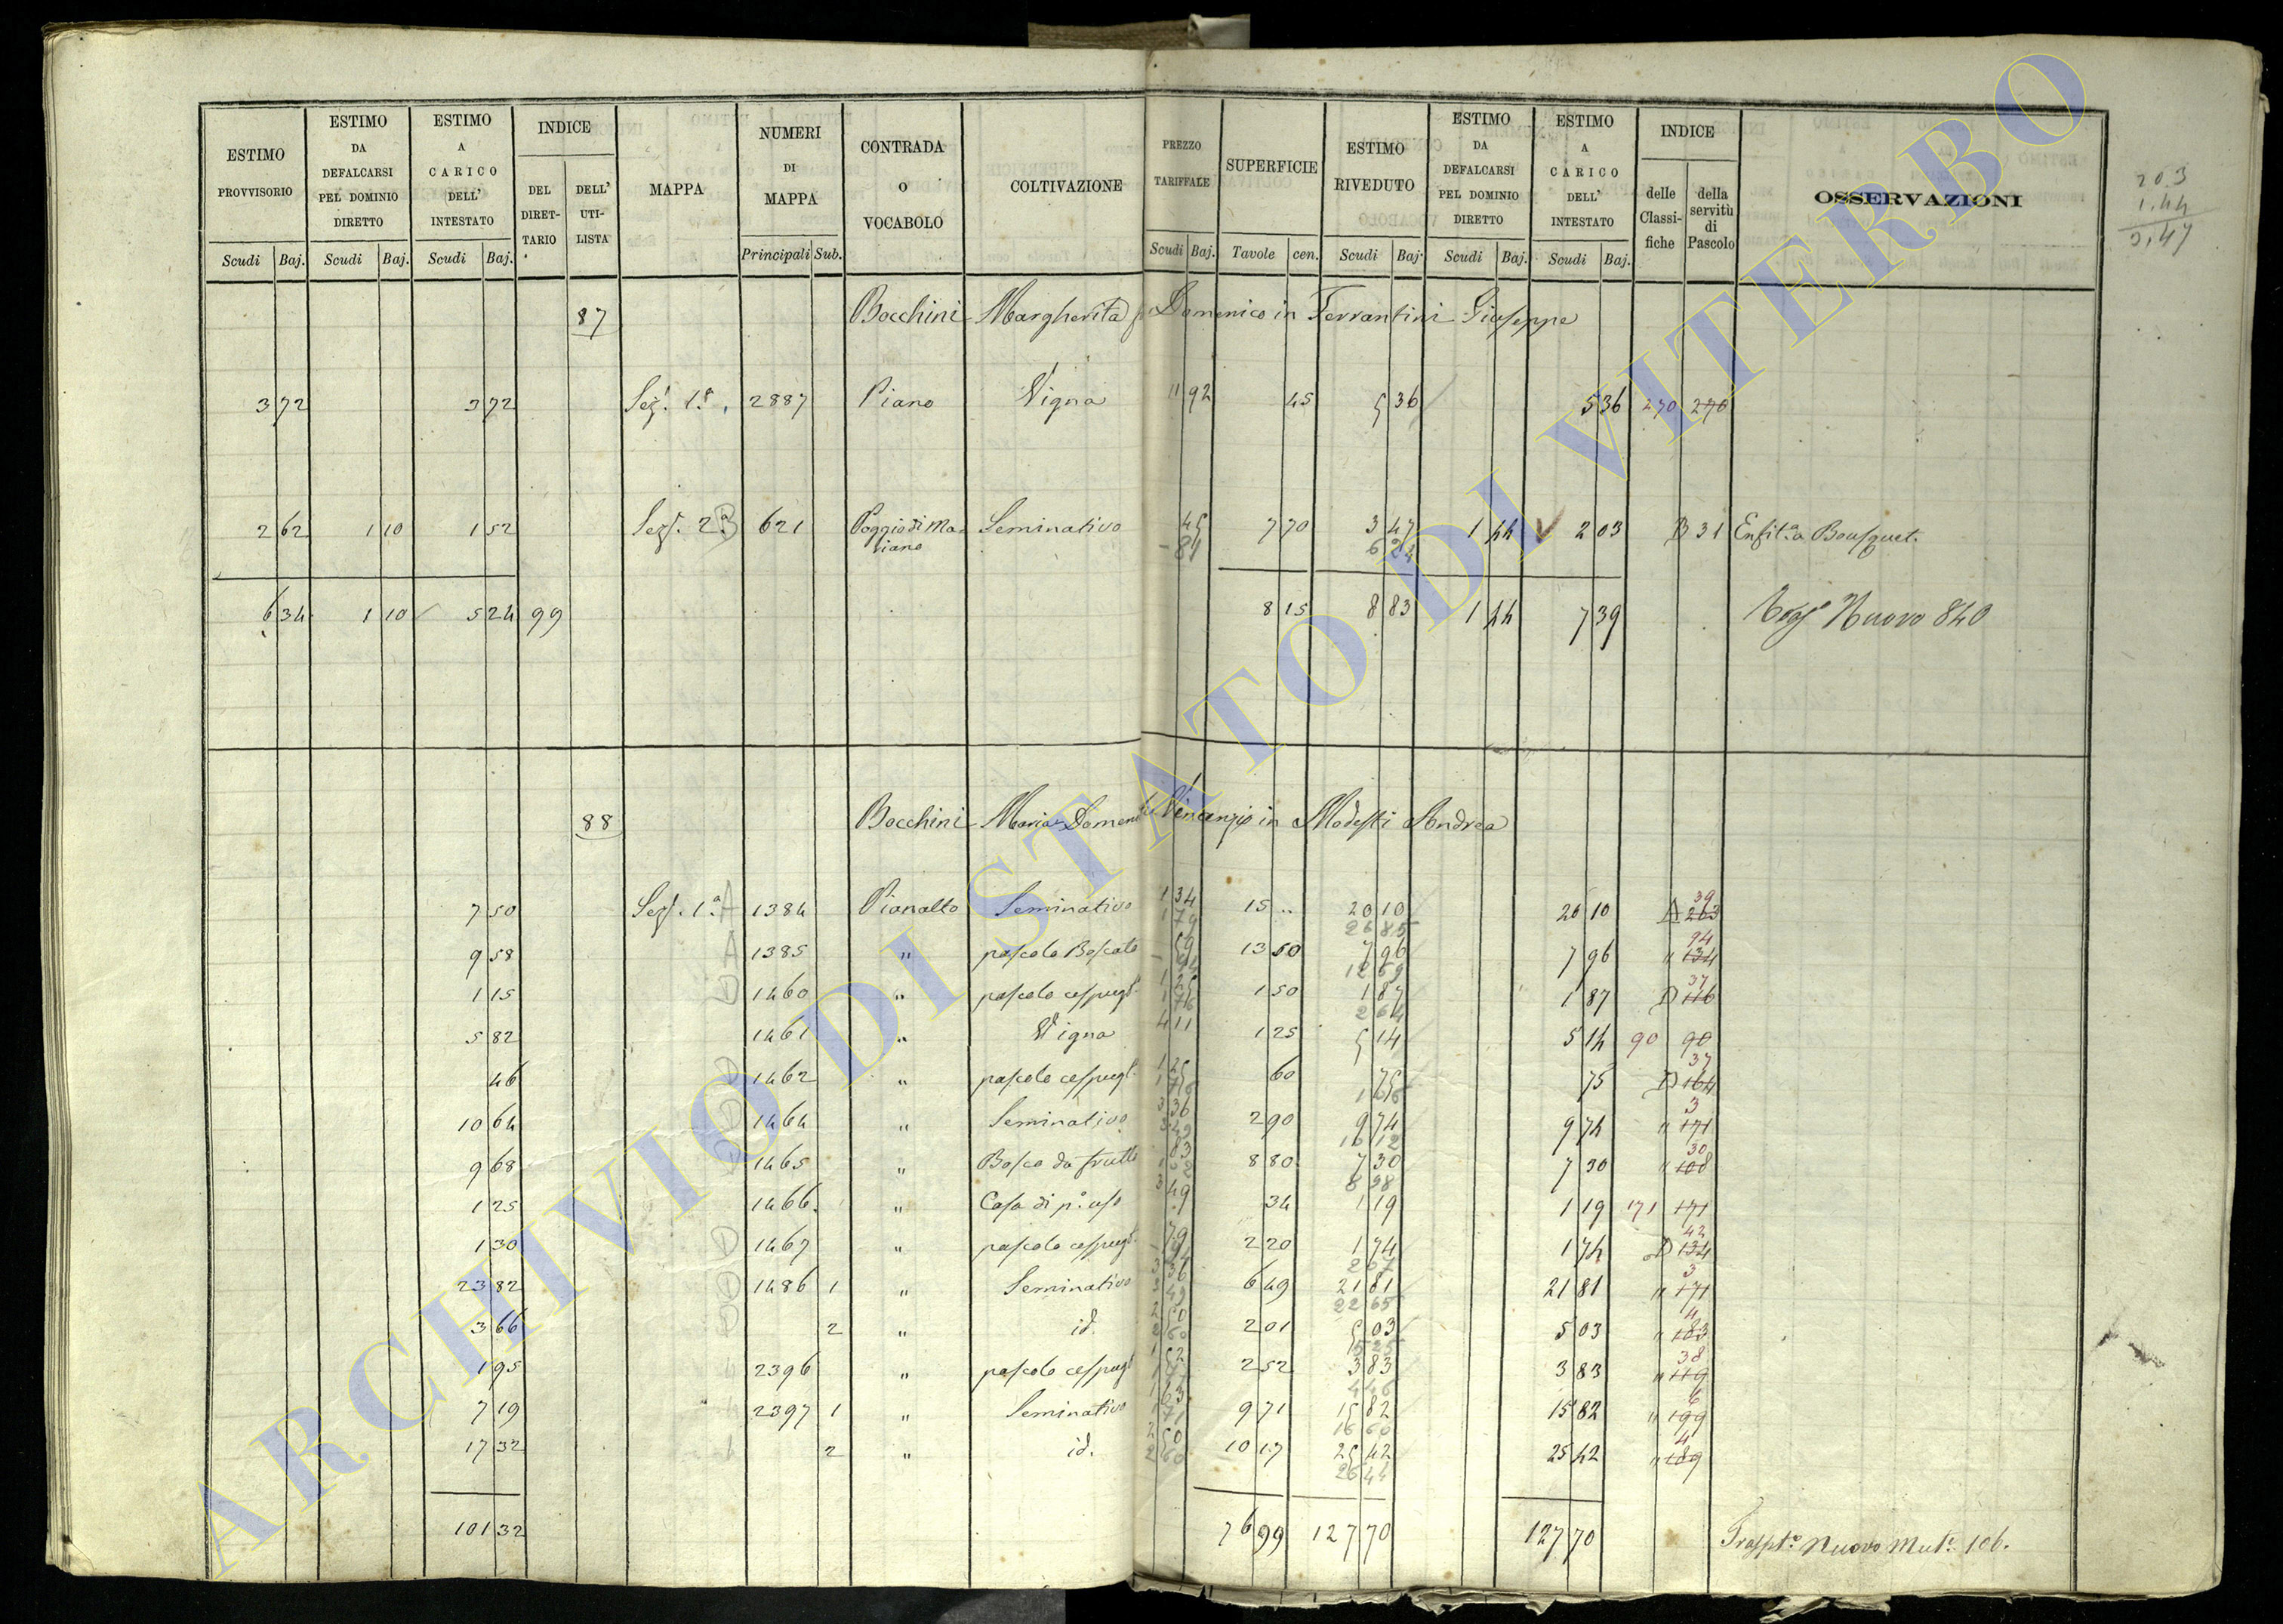 ESTIMO PROVVISORIO ESTIMO DA DEFALCARSI PEL DOMINIO DIRETTO ESTIMO A CARICO DELL' INTESTATO INDICE DEL DIRETTARIO DELL' UTILISTA MAPPA NUMERI DI MAPPA CONTRADA O VOCABOLO COLTIVAZIONE PREZZO TARIFFALE SUPERFICIE ESTIMO RIVEDUTO ESTIMO DA DEFALCARSI PEL DOMINIO DIRETTO ESTIMO A CARICO DELL' INTESTATO INDICE delle Classifiche della servitù di Pascolo OSSERVAZIONI
Scudi Baj. Scudi Baj. Scudi Baj. Principali Sub. Scudi Baj. Tavole cen. Scudi Baj. Scudi Baj. Scudi Baj.
203
1.44
3,47
87 Bocchini Margherita Domenico in Ferrantini Giuseppe
3 72 3 72 Sez. 1ª 2887 Piano Vigna 11 92 45 5 36 5 36 270 270
2 62 1 10 1 52 Sez. 2ª B 621 Poggio di Mariano Seminativo 45 7 70 3 47 1 44 2 03 B 31 Enfit.a Bousquet.
81 6 24
6 34 1 10 5 24 99 8 15 8 83 1 44 7 39 Nuovo 840
88 Bocchini Maria Domen Vincenzo in Modesti Andrea
7 50 Sez. 1ª A 1384 Pianalto Seminativo 1 34 15 .. 20 10 20 10 A 263 39
1 79 26 85
9 58 A 1385 " pascolo Boscato 59 13 50 7 96 7 96 " 134 94
12 69
1 15 D 1460 " pascolo cespugl. 1 25 1 50 1 87 1 87 D 116 37
1 76 2 64
5 82 1461 " Vigna 4 11 1 25 5 14 5 14 90 90
46 D 1462 " pascolo cespugl. 1 25 60 75 75 D 164 37
10 64 D 1464 " Seminativo 3 36 2 90 9 74 9 74 " 171 3
9 68 1465 " Bosco da frutto 83 8 80 7 30 7 30 " 108 30
1 25 1466. " Casa di p.o uso 3 49 34 1 19 1 19 171 171
1 30 D 1467 " pascolo cespugl. 79 2 20 1 74 1 74 D 134 42
2 67
23 82 D 1486 1 " Seminativo 3 36 6 49 21 81 21 81 " 171 3
3 49 22 65
3 66 D 2 " id. 2 50 2 01 5 03 5 03 " 183 4
2 60
1 95 2396 " pascolo cespugl 1 52 2 52 3 83 3 83 " 119 38
7 19 2397 1 " Seminativo 1 63 9 71 15 82 15 82 " 199 6
1 71 16 60
17 32 2 " id. 2 50 10 17 25 42 25 42 " 189 4
2 60 26 44
101 32 76 99 127 70 127 70 Trasp.to Nuovo Mut.e 106.
ARCHIVIO DI STATO DI VITERBO